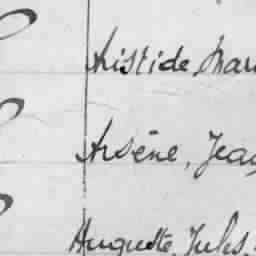 Aristide, Mar
Arsène, Jean
Auguste, Jules,